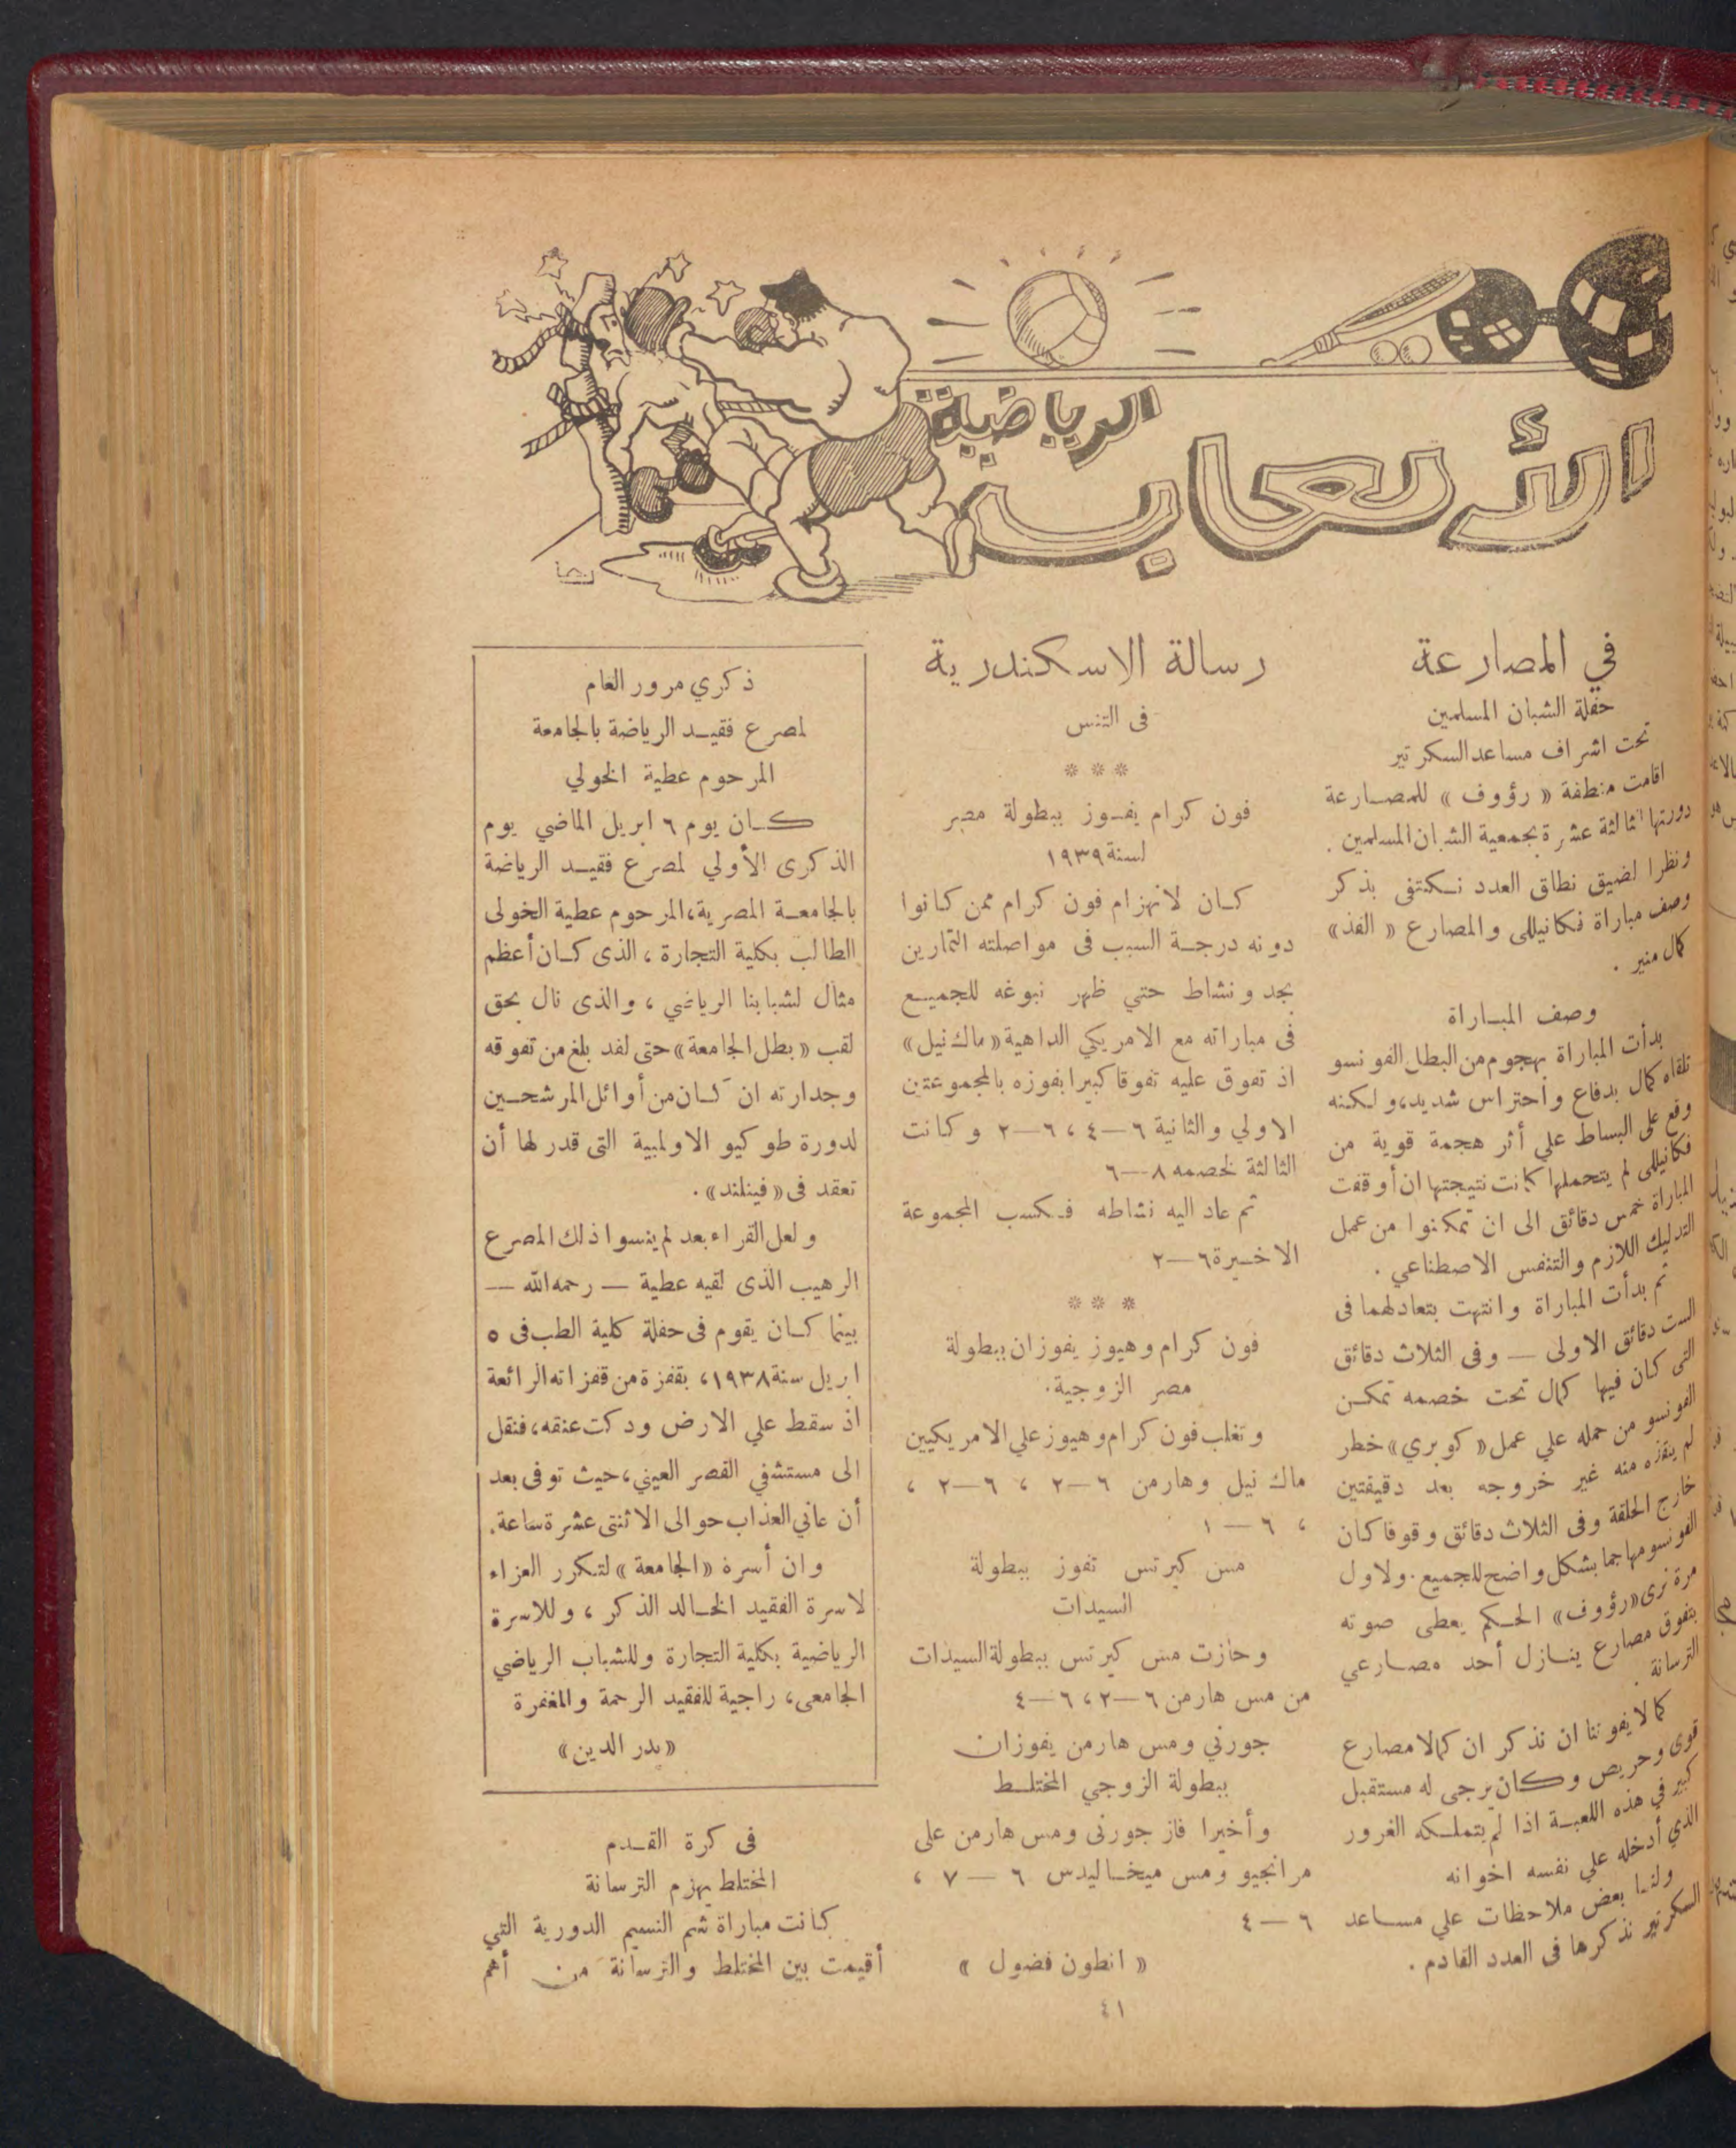 الألعاب
الرياضية
في المصارعة
حفلة الشبان المسلمين
تحت اشراف مساعد السكرتير
اقامت منطقة « رؤوف » للمصارعة
دورتها الثالثة عشرة بجمعية الشبان المسلمين .
ونظرا لضيق نطاق العدد نكتفى بذكر
وصف مباراة فكانيللى والمصارع « الفذ»
كمال منير .
وصف المباراة
بدأت المباراة بهجوم من البطل الفونسو
تلقاه كمال بدفاع واحتراس شديد، ولكنه
وقع على البساط علي أثر هجمة قوية من
فكانيللى لم يتحملها كانت نتيجتها ان أوقفت
المباراة خمس دقائق الى ان تمكنوا من عمل
التدليك اللازم والتنفس الاصطناعي .
ثم بدأت المباراة وانتهت بتعادلهما فى
الست دقائق الاولى — وفى الثلاث دقائق
التى كان فيها كمال تحت خصمه تمكن
الفونسو من حمله علي عمل «كوبري» خطر
لم ينقذه منه غير خروجه بعد دقيقتين
خارج الحلقة وفى الثلاث دقائق وقوفا كان
الفونسو مهاجما بشكل واضح للجميع . ولاول
مرة نرى «رؤوف» الحكم يعطى صوته
بتفوق مصارع ينازل أحد مصارعي
الترسانة .
كما لا يفوتنا ان نذكر ان كمالا مصارع
قوى وحريص وكان يرجى له مستقبل
كبير في هذه اللعبة اذا لم يتملكه الغرور
الذي أدخله علي نفسه اخوانه
ولنا بعض ملاحظات علي مساعد
السكرتير نذكرها فى العدد القادم .
رسالة الاسكندرية
فى التنس
* * *
فون كرام يفوز ببطولة مصر
لسنة ١٩٣٩
كان لانهزام فون كرام ممن كانوا
دونه درجة السبب فى مواصلته التمارين
بجد ونشاط حتي ظهر نبوغه للجميع
فى مباراته مع الامريكي الداهية «ماك نيل»
اذ تفوق عليه تفوقا كبيرا بفوزه بالمجموعتين
الاولي والثانية ٦—٤ ، ٦—٢ وكانت
الثالثة لخصمه ٨—٦
ثم عاد اليه نشاطه فكسب المجموعة
الاخيرة ٦—٢
* * *
فون كرام وهيوز يفوزان ببطولة
مصر الزوجية .
وتغلب فون كرام وهيوز علي الامريكيين
ماك نيل وهارمن ٦—٢ ، ٦—٢ ،
، ٦ — ١
مس كيرتس تفوز ببطولة
السيدات
وحازت مس كيرتس ببطولة السيدات
من مس هارمن ٦—٢ ، ٦—٤
جورني ومس هارمن يفوزان
ببطولة الزوجي المختلط
وأخيرا فاز جورنى ومس هارمن على
مرانجيو ومس ميخاليدس ٦ — ٧ ،
٦ — ٤
« انطون فضول »
ذكري مرور العام
لمصرع فقيد الرياضة بالجامعة
المرحوم عطية الخولي
كان يوم ٦ ابريل الماضي يوم
الذكرى الأولي لمصرع فقيد الرياضة
بالجامعة المصرية، المرحوم عطية الخولى
الطالب بكلية التجارة ، الذى كان أعظم
مثال لشبابنا الرياضي ، والذى نال بحق
لقب «بطل الجامعة» حتى لقد بلغ من تفوقه
وجدارته ان كان من أوائل المرشحين
لدورة طوكيو الاولمبية التى قدر لها أن
تعقد فى «فينلند» .
ولعل القراء بعد لم ينسوا ذلك المصرع
الرهيب الذى لقيه عطية — رحمه الله —
بينما كان يقوم فى حفلة كلية الطب فى ٥
ابريل سنة ١٩٣٨، بقفزة من قفزاته الرائعة
اذ سقط علي الارض ودكت عنقه، فنقل
الى مستشفي القصر العيني، حيث توفى بعد
أن عاني العذاب حوالى الاثنتى عشرة ساعة .
وان أسرة «الجامعة» لتكرر العزاء
لاسرة الفقيد الخالد الذكر ، وللاسرة
الرياضية بكلية التجارة وللشباب الرياضي
الجامعى، راجية للفقيد الرحمة والمغفرة
«بدر الدين»
فى كرة القدم
المختلط يهزم الترسانة
كانت مباراة شم النسيم الدورية التي
أقيمت بين المختلط والترسانة من أهم
٤١